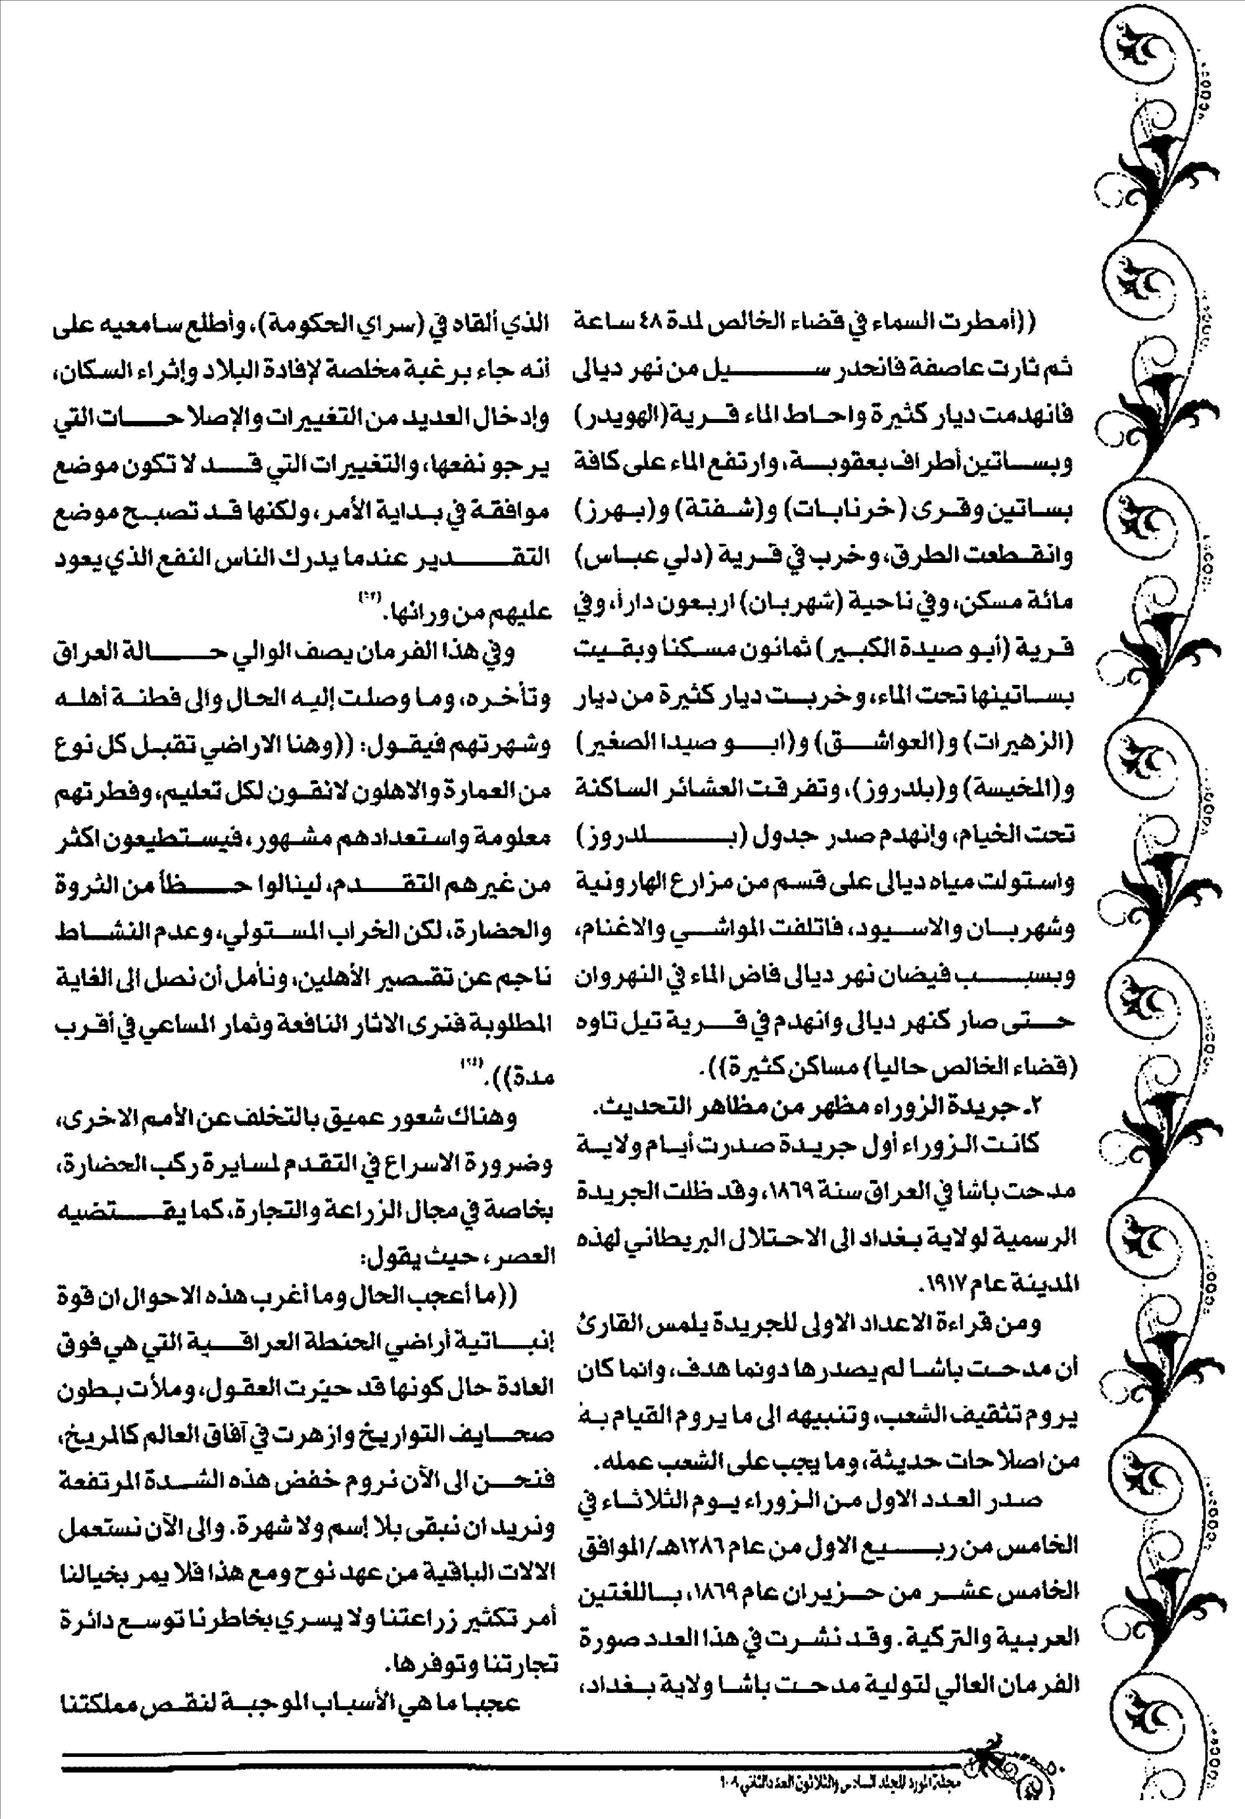 ((أمطرت السماء في قضاء الخالص لمدة ٤٨ ساعة
ثم ثارت عاصفة فانحدر سيل من نهر ديالى
فانهدمت ديار كثيرة واحاط الماء قرية(الهويدر)
وبساتين أطراف بعقوبة، وارتفع الماء على كافة
بساتين وقرى (خرنابات) و(شفتة) و(بهرز)
وانقطعت الطرق، وخرب في قرية (دلي عباس)
مائة مسكن، وفي ناحية (شهربان) اربعون داراً، وفي
قرية (أبو صيدة الكبير) ثمانون مسكناً وبقيت
بساتينها تحت الماء، وخربت ديار كثيرة من ديار
(الزهيرات) و(العواشق) و(ابو صيدا الصغير)
و(المخيسة) و(بلدروز)، وتفرقت العشائر الساكنة
تحت الخيام، وإنهدم صدر جدول (بلدروز)
واستولت مياه ديالى على قسم من مزارع الهارونية
وشهربان والاسيود، فاتلفت المواشي والاغنام،
وبسبب فيضان نهر ديالى فاض الماء في النهروان
حتى صار كنهر ديالى وانهدم في قرية تيل تاوه
(قضاء الخالص حالياً) مساكن كثيرة)).
٢ـ جريدة الزوراء مظهر من مظاهر التحديث.
كانت الزوراء أول جريدة صدرت أيام ولاية
مدحت باشا في العراق سنة ١٨٦٩، وقد ظلت الجريدة
الرسمية لولاية بغداد الى الاحتلال البريطاني لهذه
المدينة عام ١٩١٧.
ومن قراءة الاعداد الاولى للجريدة يلمس القارئ
أن مدحت باشا لم يصدرها دونما هدف، وانما كان
يروم تثقيف الشعب، وتنبيهه الى ما يروم القيام به
من اصلاحات حديثة، وما يجب على الشعب عمله.
صدر العدد الاول من الزوراء يوم الثلاثاء في
الخامس من ربيع الاول من عام ١٢٨٦هـ/الموافق
الخامس عشر من حزيران عام ١٨٦٩، باللغتين
العربية والتركية. وقد نشرت في هذا العدد صورة
الفرمان العالي لتولية مدحت باشا ولاية بغداد،
الذي ألقاه في (سراي الحكومة)، وأطلع سامعيه على
أنه جاء برغبة مخلصة لإفادة البلاد وإثراء السكان،
وإدخال العديد من التغييرات والإصلاحات التي
يرجو نفعها، والتغييرات التي قد لا تكون موضع
موافقة في بداية الأمر، ولكنها قد تصبح موضع
التقدير عندما يدرك الناس النفع الذي يعود
عليهم من ورائها.
وفي هذا الفرمان يصف الوالي حالة العراق
وتأخره، وما وصلت إليه الحال والى فطنة أهله
وشهرتهم فيقول: ((وهنا الاراضي تقبل كل نوع
من العمارة والاهلون لانقون لكل تعليم، وفطرتهم
معلومة واستعدادهم مشهور، فيستطيعون اكثر
من غيرهم التقدم، لينالوا حظاً من الثروة
والحضارة، لكن الخراب المستولي، وعدم النشاط
ناجم عن تقصير الأهلين، ونأمل أن نصل الى الغاية
المطلوبة فنرى الاثار النافعة وثمار المساعي في أقرب
مدة)).
وهناك شعور عميق بالتخلف عن الأمم الاخرى،
وضرورة الاسراع في التقدم لمسايرة ركب الحضارة،
بخاصة في مجال الزراعة والتجارة، كما يقتضيه
العصر، حيث يقول:
((ما أعجب الحال وما أغرب هذه الاحوال ان قوة
إنباتية أراضي الحنطة العراقية التي هي فوق
العادة حال كونها قد حيّرت العقول، وملأت بطون
صحايف التواريخ وازهرت في آفاق العالم كالمريخ،
فنحن الى الآن نروم خفض هذه الشدة المرتفعة
ونريد ان نبقى بلا إسم ولا شهرة. والى الآن نستعمل
الالات الباقية من عهد نوح ومع هذا فلا يمر بخيالنا
أمر تكثير زراعتنا ولا يسري بخاطرنا توسع دائرة
تجارتنا وتوفرها.
عجبا ما هي الأسباب الموجبة لنقص مملكتنا
مجلة المورد المجلد السادس والثلاثون العدد الثاني